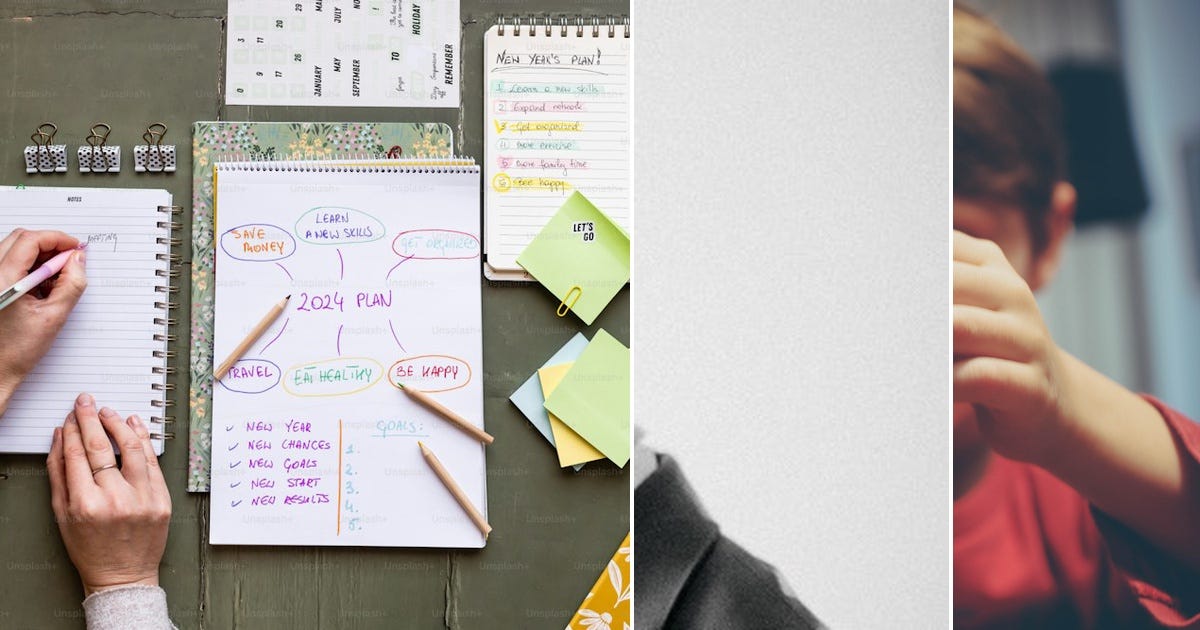 HOLIDAY
TO
REMEMBER
JANUARY
MAY
SEPTEMBER
JULY
3
11
20
29
0
9
17
26
NEW YEAR'S PLAN!
1 Learn a new skills
2 Expand network
3 Get organized
4 more exercise
5 more family time
6 Bee happy
LET'S
GO
NOTES
MEETING
SAVE
MONEY
LEARN
A NEW SKILLS
GET ORGANIZED
2024 PLAN
TRAVEL
EAT HEALTHY
BE HAPPY
NEW YEAR
NEW CHANCES
NEW GOALS
NEW START
NEW RESULTS
GOALS:
1.
2.
3.
4.
5.
Unsplash+